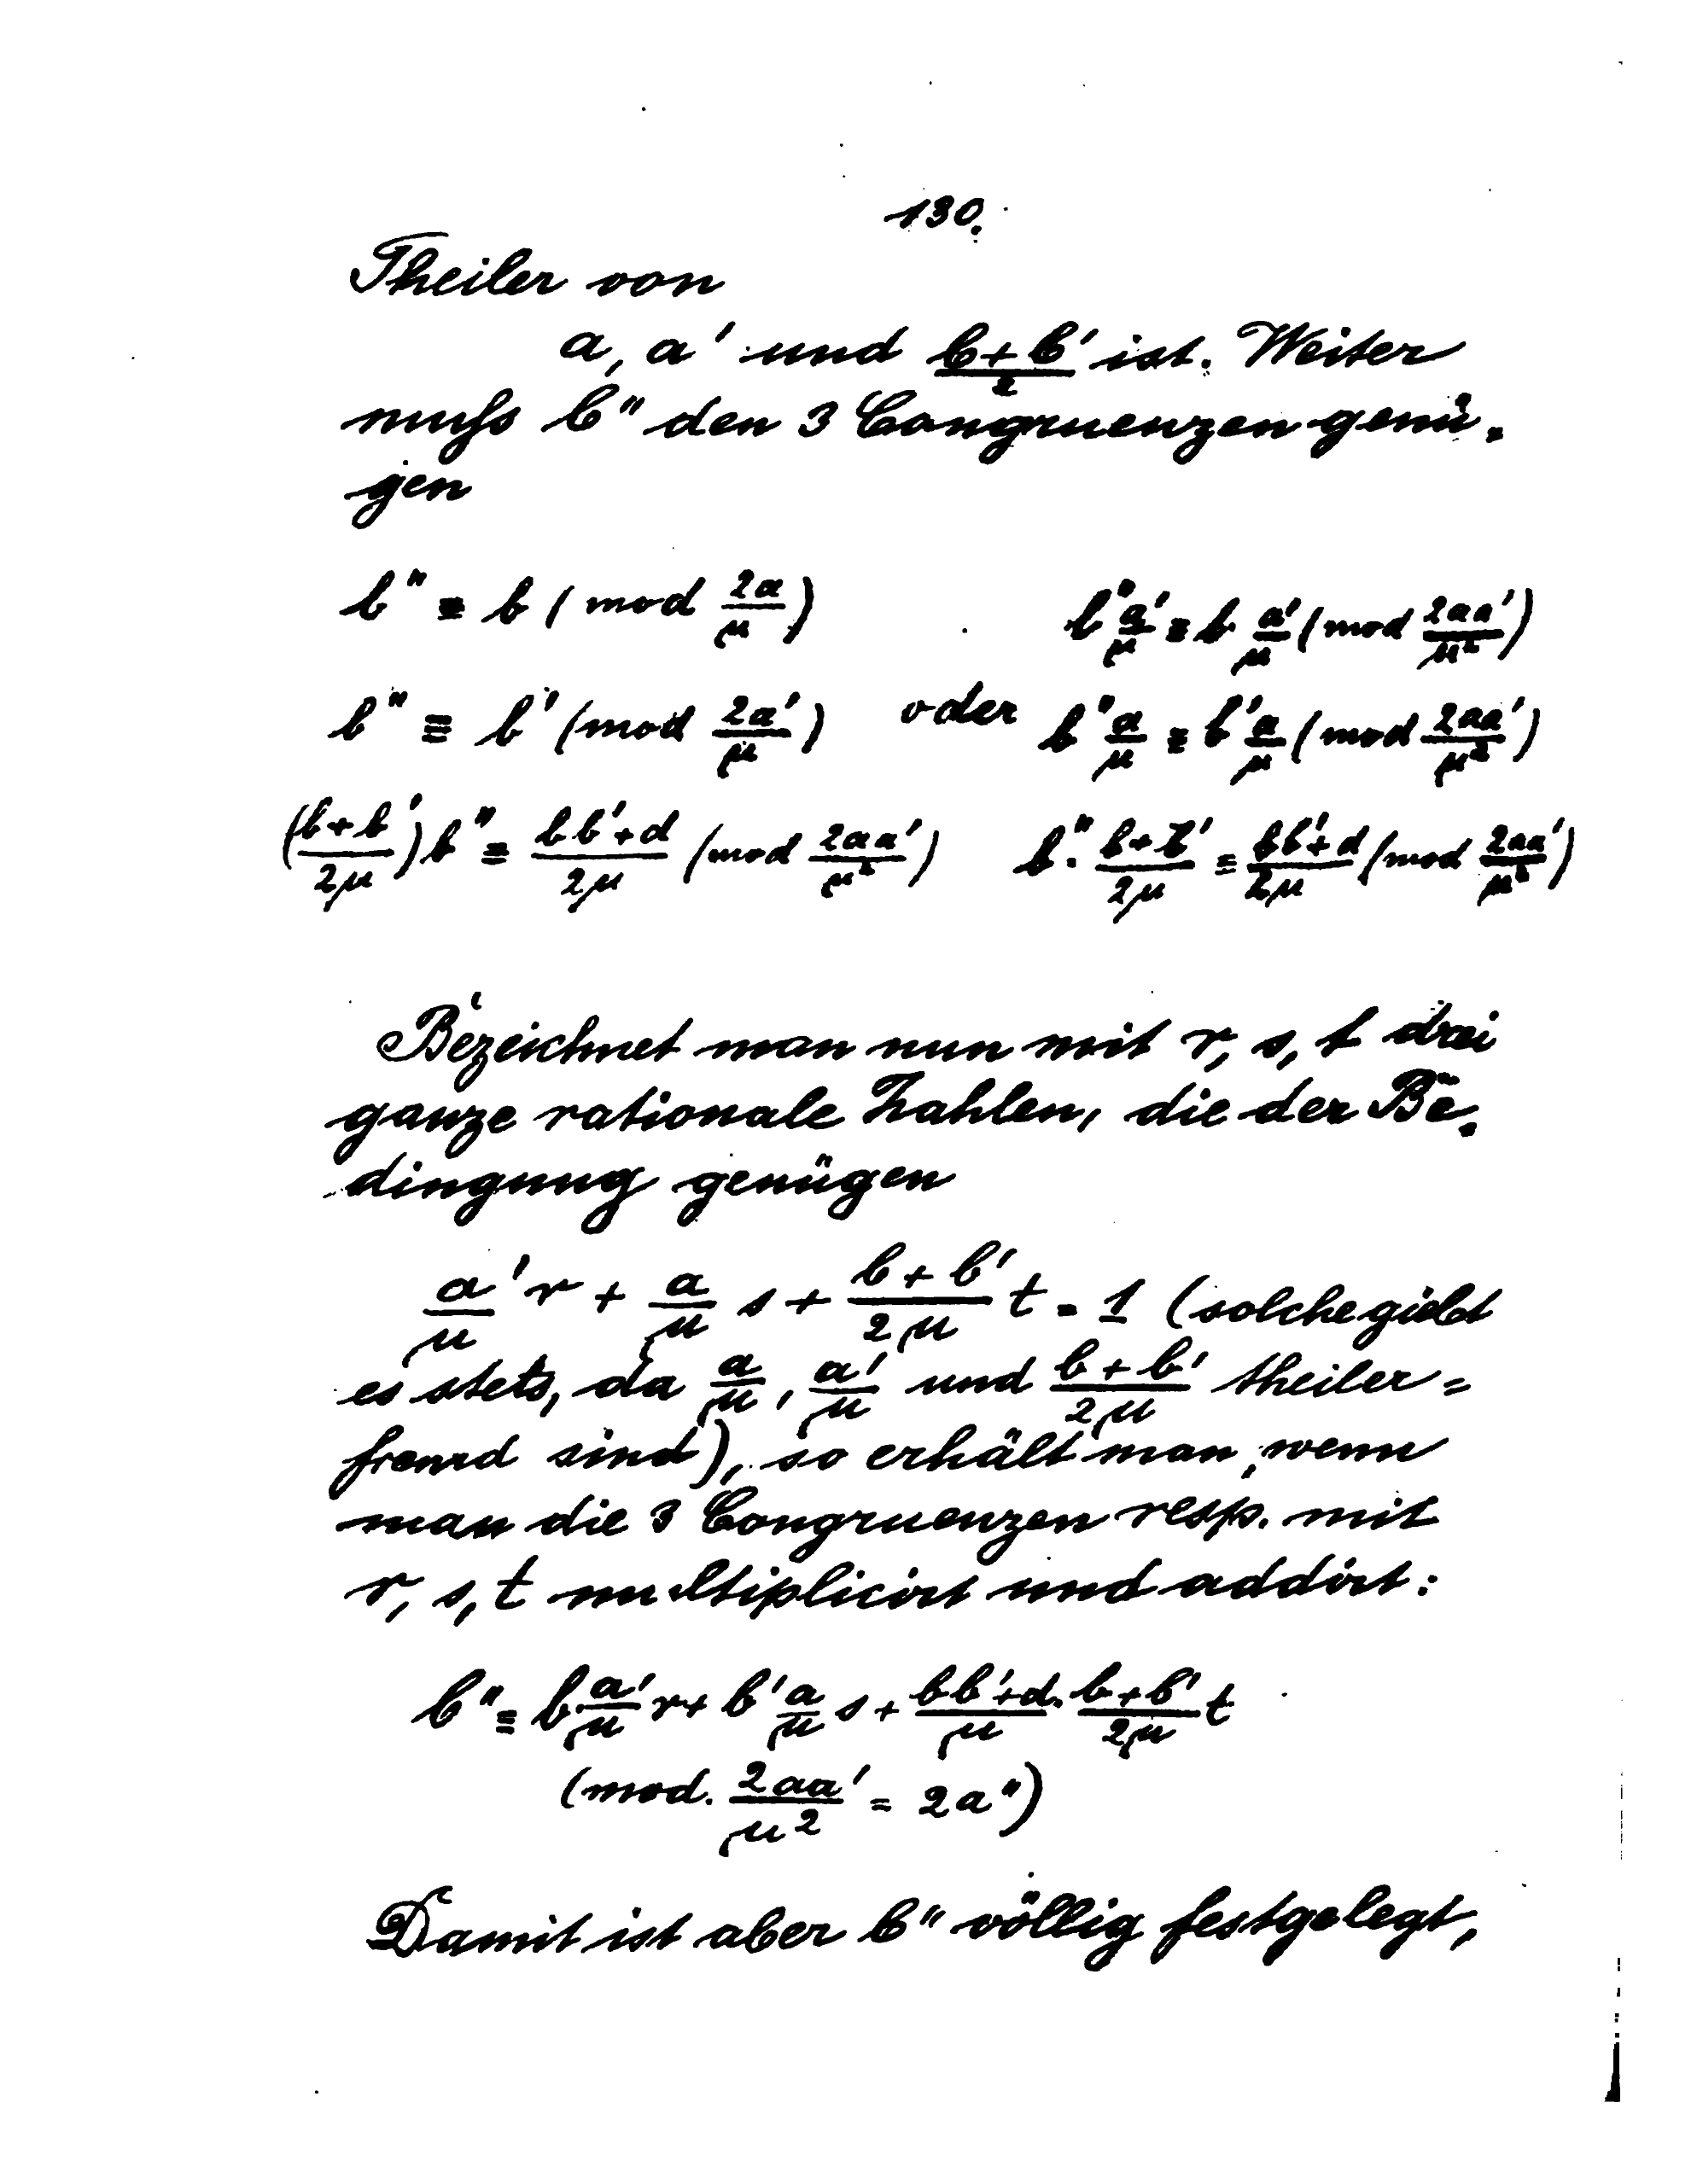 130.
Theiler von
a, a' und \frac{b+b'}{2} ist. Weiter
muſs b'' den 3 Congruenzen genü-
gen
b'' ≡ b (mod \frac{2a}{μ})    b''\frac{a'}{μ} ≡ b \frac{a'}{μ} (mod \frac{2aa'}{μ^2})
b'' ≡ b' (mod \frac{2a'}{μ}) oder b''\frac{a}{μ} ≡ b'\frac{a}{μ} (mod \frac{2aa'}{μ^2})
(\frac{b+b'}{2μ}) b'' ≡ \frac{bb'+d}{2μ} (mod \frac{2aa'}{μ^2})    b''. \frac{b+b'}{2μ} ≡ \frac{bb'+d}{2μ} (mod \frac{2aa'}{μ^2})
Bezeichnet man nun mit r, s, t drei
ganze rationale Zahlen, die der Be-
dingung genügen
\frac{a'}{μ} r + \frac{a}{μ} s + \frac{b+b'}{2μ} t = 1 (solche giebt
es stets, da \frac{a}{μ}, \frac{a'}{μ} und \frac{b+b'}{2μ} theiler=
fremd sind), so erhält man, wenn
man die 3 Congruenzen resp. mit
r, s, t multiplicirt und addirt:
b'' ≡ b\frac{a'}{μ} r + b'\frac{a}{μ} s + \frac{bb'+d}{μ}. \frac{b+b'}{2μ} t
(mod. \frac{2aa'}{μ^2} = 2a'')
Damit ist aber b'' völlig festgelegt,